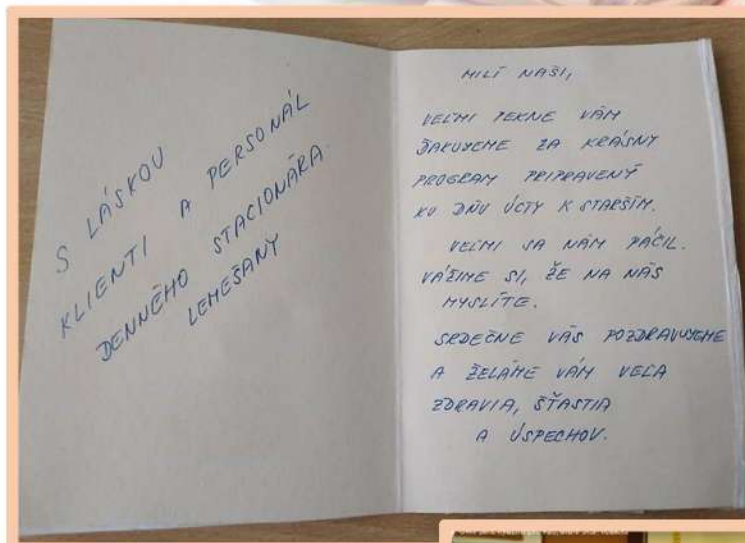 S LÁSKOU
KLIENTI A PERSONÁL
DENNÉHO STACIONÁRA
LEMEŠANY
MILÍ NAŠI,
VEĽMI PEKNE VÁM
ĎAKUJEME ZA KRÁSNY
PROGRAM PRIPRAVENÝ
KU DŇU ÚCTY K STARŠÍM.
VEĽMI SA NÁM PÁČIL.
VÁŽIME SI, ŽE NA NÁS
MYSLÍTE.
SRDEČNE VÁS POZDRAVUJEME
A ŽELÁME VÁM VEĽA
ZDRAVIA, ŠŤASTIA
A ÚSPECHOV.